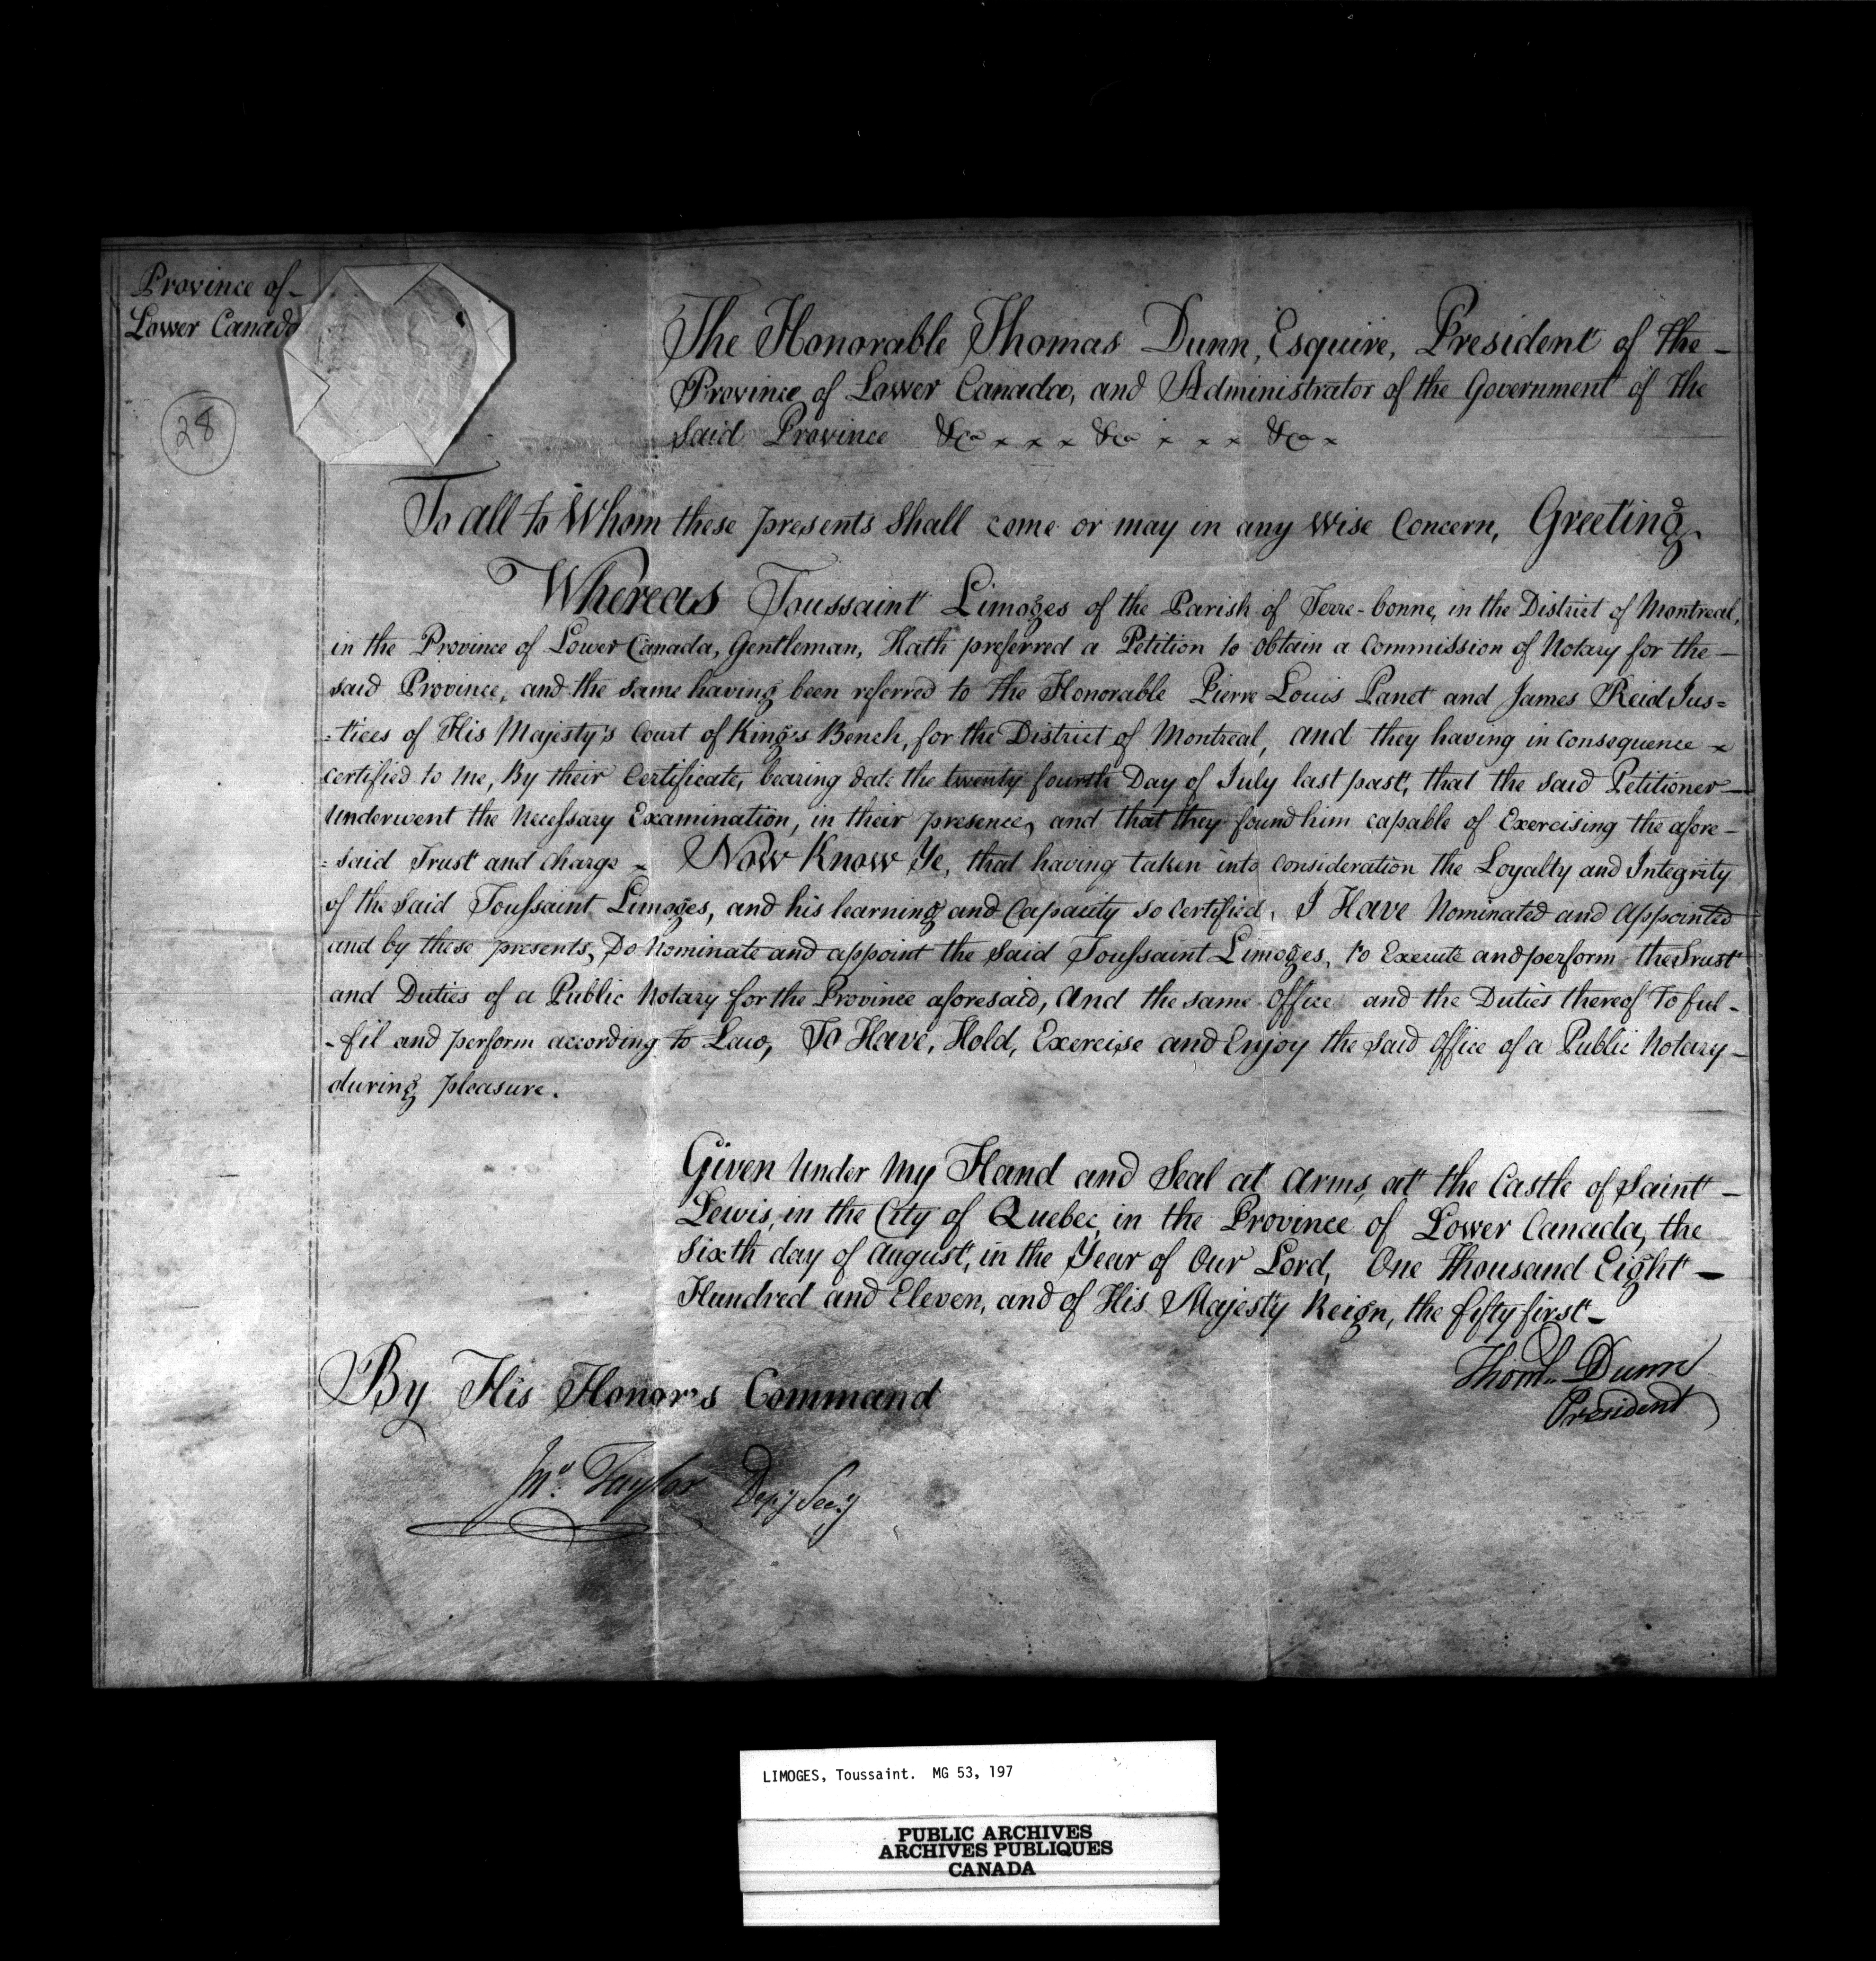 Province of –
Lower Canada
28
The Honorable Thomas Dunn, Esquire, President of the –
Province of Lower Canada, and Administrator of the Government of the
said Province &ca x x x &ca x x x &ca x
To all to Whom these presents Shall come or may in any wise Concern, Greeting
Whereas Toussaint Limoges of the Parish of Terre-bonne, in the District of Montreal,
in the Province of Lower Canada, Gentleman, Hath preferred a Petition to obtain a Commission of Notary for the –
said Province, and the same having been referred to the Honorable Pierre Louis Panet and James Reid Jus=
=tices of His Majesty's Court of King's Bench, for the District of Montreal, and they having in consequence x
certified to me, By their Certificate, bearing date the twenty fourth Day of July last past, that the said Petitioner –
underwent the necessary Examination, in their presence, and that they found him capable of Exercising the afore –
=said Trust and charge x Now Know Ye, that having taken into consideration the Loyalty and Integrity
of the Said Toussaint Limoges, and his learning and Capacity so certified, I Have Nominated and Appointed
and by these presents, Do nominate and appoint the said Toussaint Limoges, to Execute and perform the Trust
and Duties of a Public Notary for the Province aforesaid, And the same office and the Duties thereof To ful –
-fil and perform according to Law, To Have, Hold, Exercise and Enjoy the said Office of a Public Notary –
during pleasure.
Given under my Hand and Seal at Arms, at the Castle of Saint –
Lewis, in the City of Quebec, in the Province of Lower Canada, the
sixth day of August, in the Year of Our Lord, One Thousand Eight –
Hundred and Eleven, and of His Majesty Reign, the fifty first –
Thoms. Dunn
President
By His Honor's Command
Jno. Taylor Depy Secy
LIMOGES, Toussaint. MG 53, 197
PUBLIC ARCHIVES
ARCHIVES PUBLIQUES
CANADA